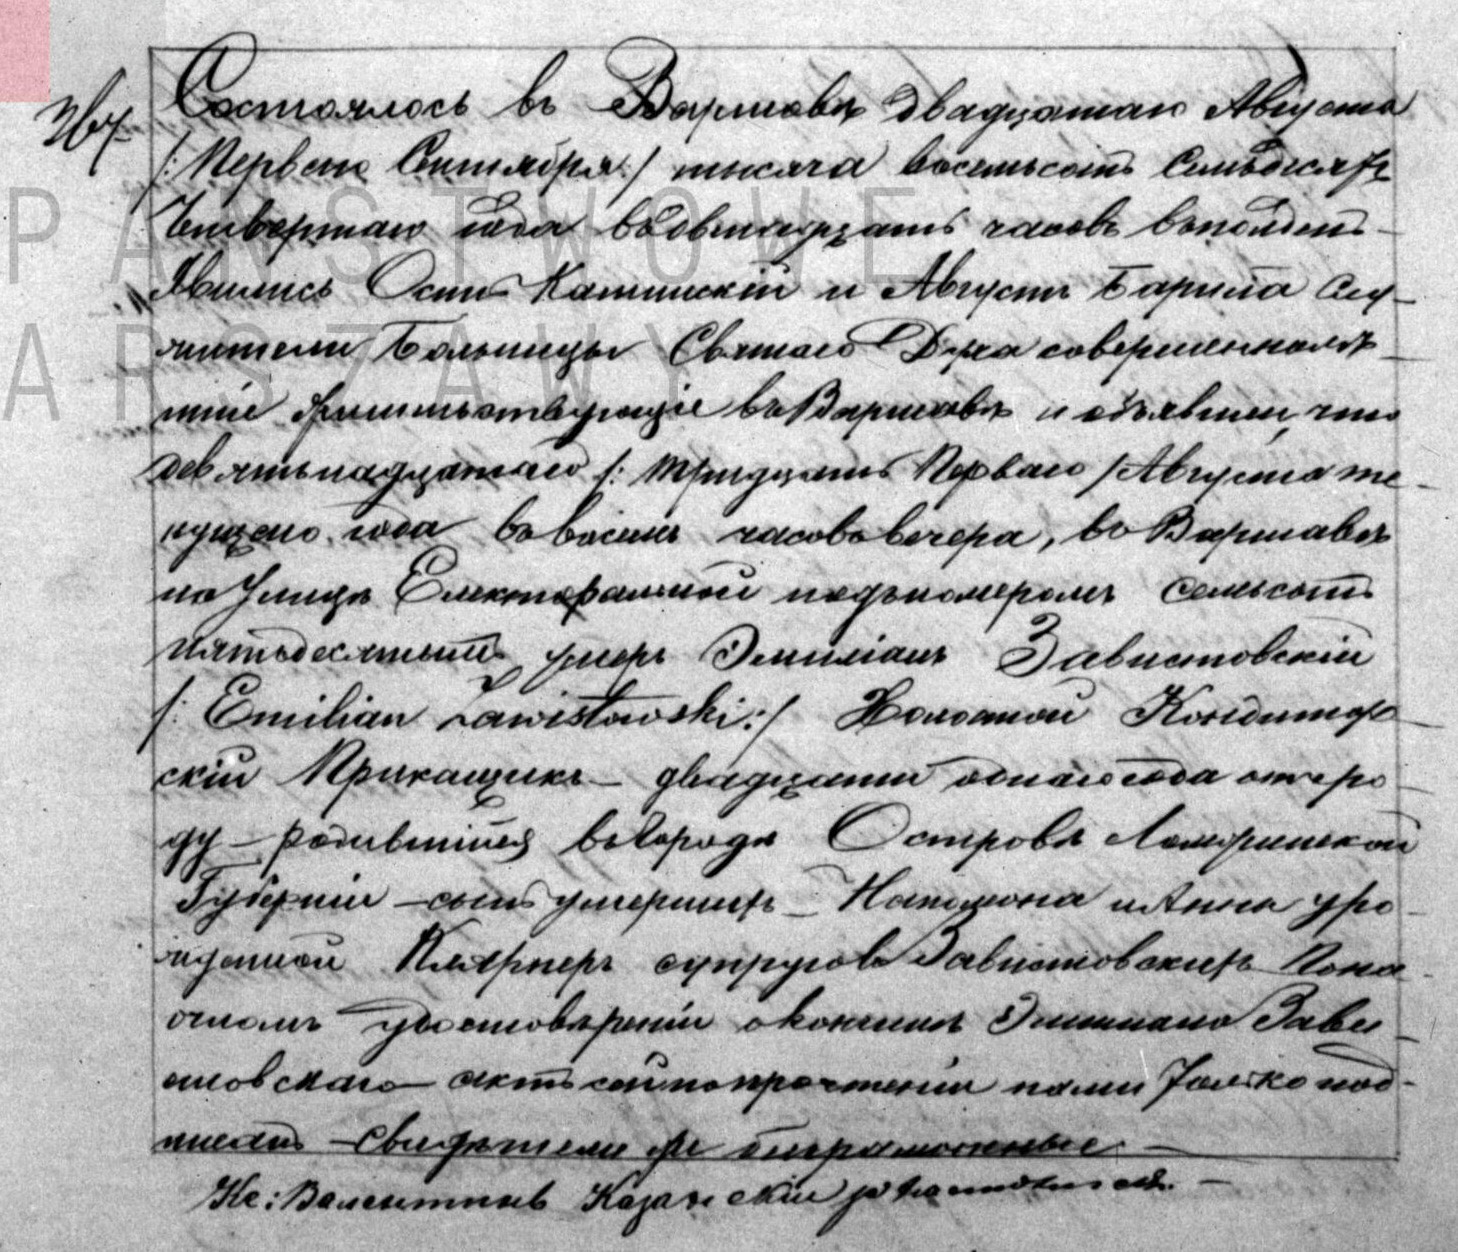 Состоялось въ Варшавѣ двадцатаго Августа
/: Перваго Сентября :/ тысяча восемьсотъ семьдесятъ
Четвертаго года въ двенадцать часовъ въ полдень
PAŃSTWOWE
Явились Осипъ Каминскій и Августъ Барила слу-
жители Больницы Святаго Духа совершеннолѣ-
ARSZAWY
тніе жительствующіе въ Варшавѣ и объявили, что
девятьнадцатаго /: тридцать Перваго / Августа те-
кущаго года въ восемь часовъ вечера, въ Варшавѣ
на Улицѣ Електоральной подъ номеромъ семьсотъ
пятьдесятымъ умеръ Эмиліанъ Завистовскій
/: Emilian Zawistowski :/ Холостой Кондитор
скій Прикащикъ – двадцати одного года отъ ро-
ду – родившійся въ городѣ Островѣ Ломжинской
Губерніи – сынъ умершихъ – Наполіона и Анны уро-
жденной супруговъ Завистовскихъ По на-
очномъ удостовѣреніи о кончинѣ Эмиліана Зави-
стовскаго – актъ сей по прочтеніи нами только под-
писанъ – Свидѣтели же неграмотные. –
Кс: Валентинъ